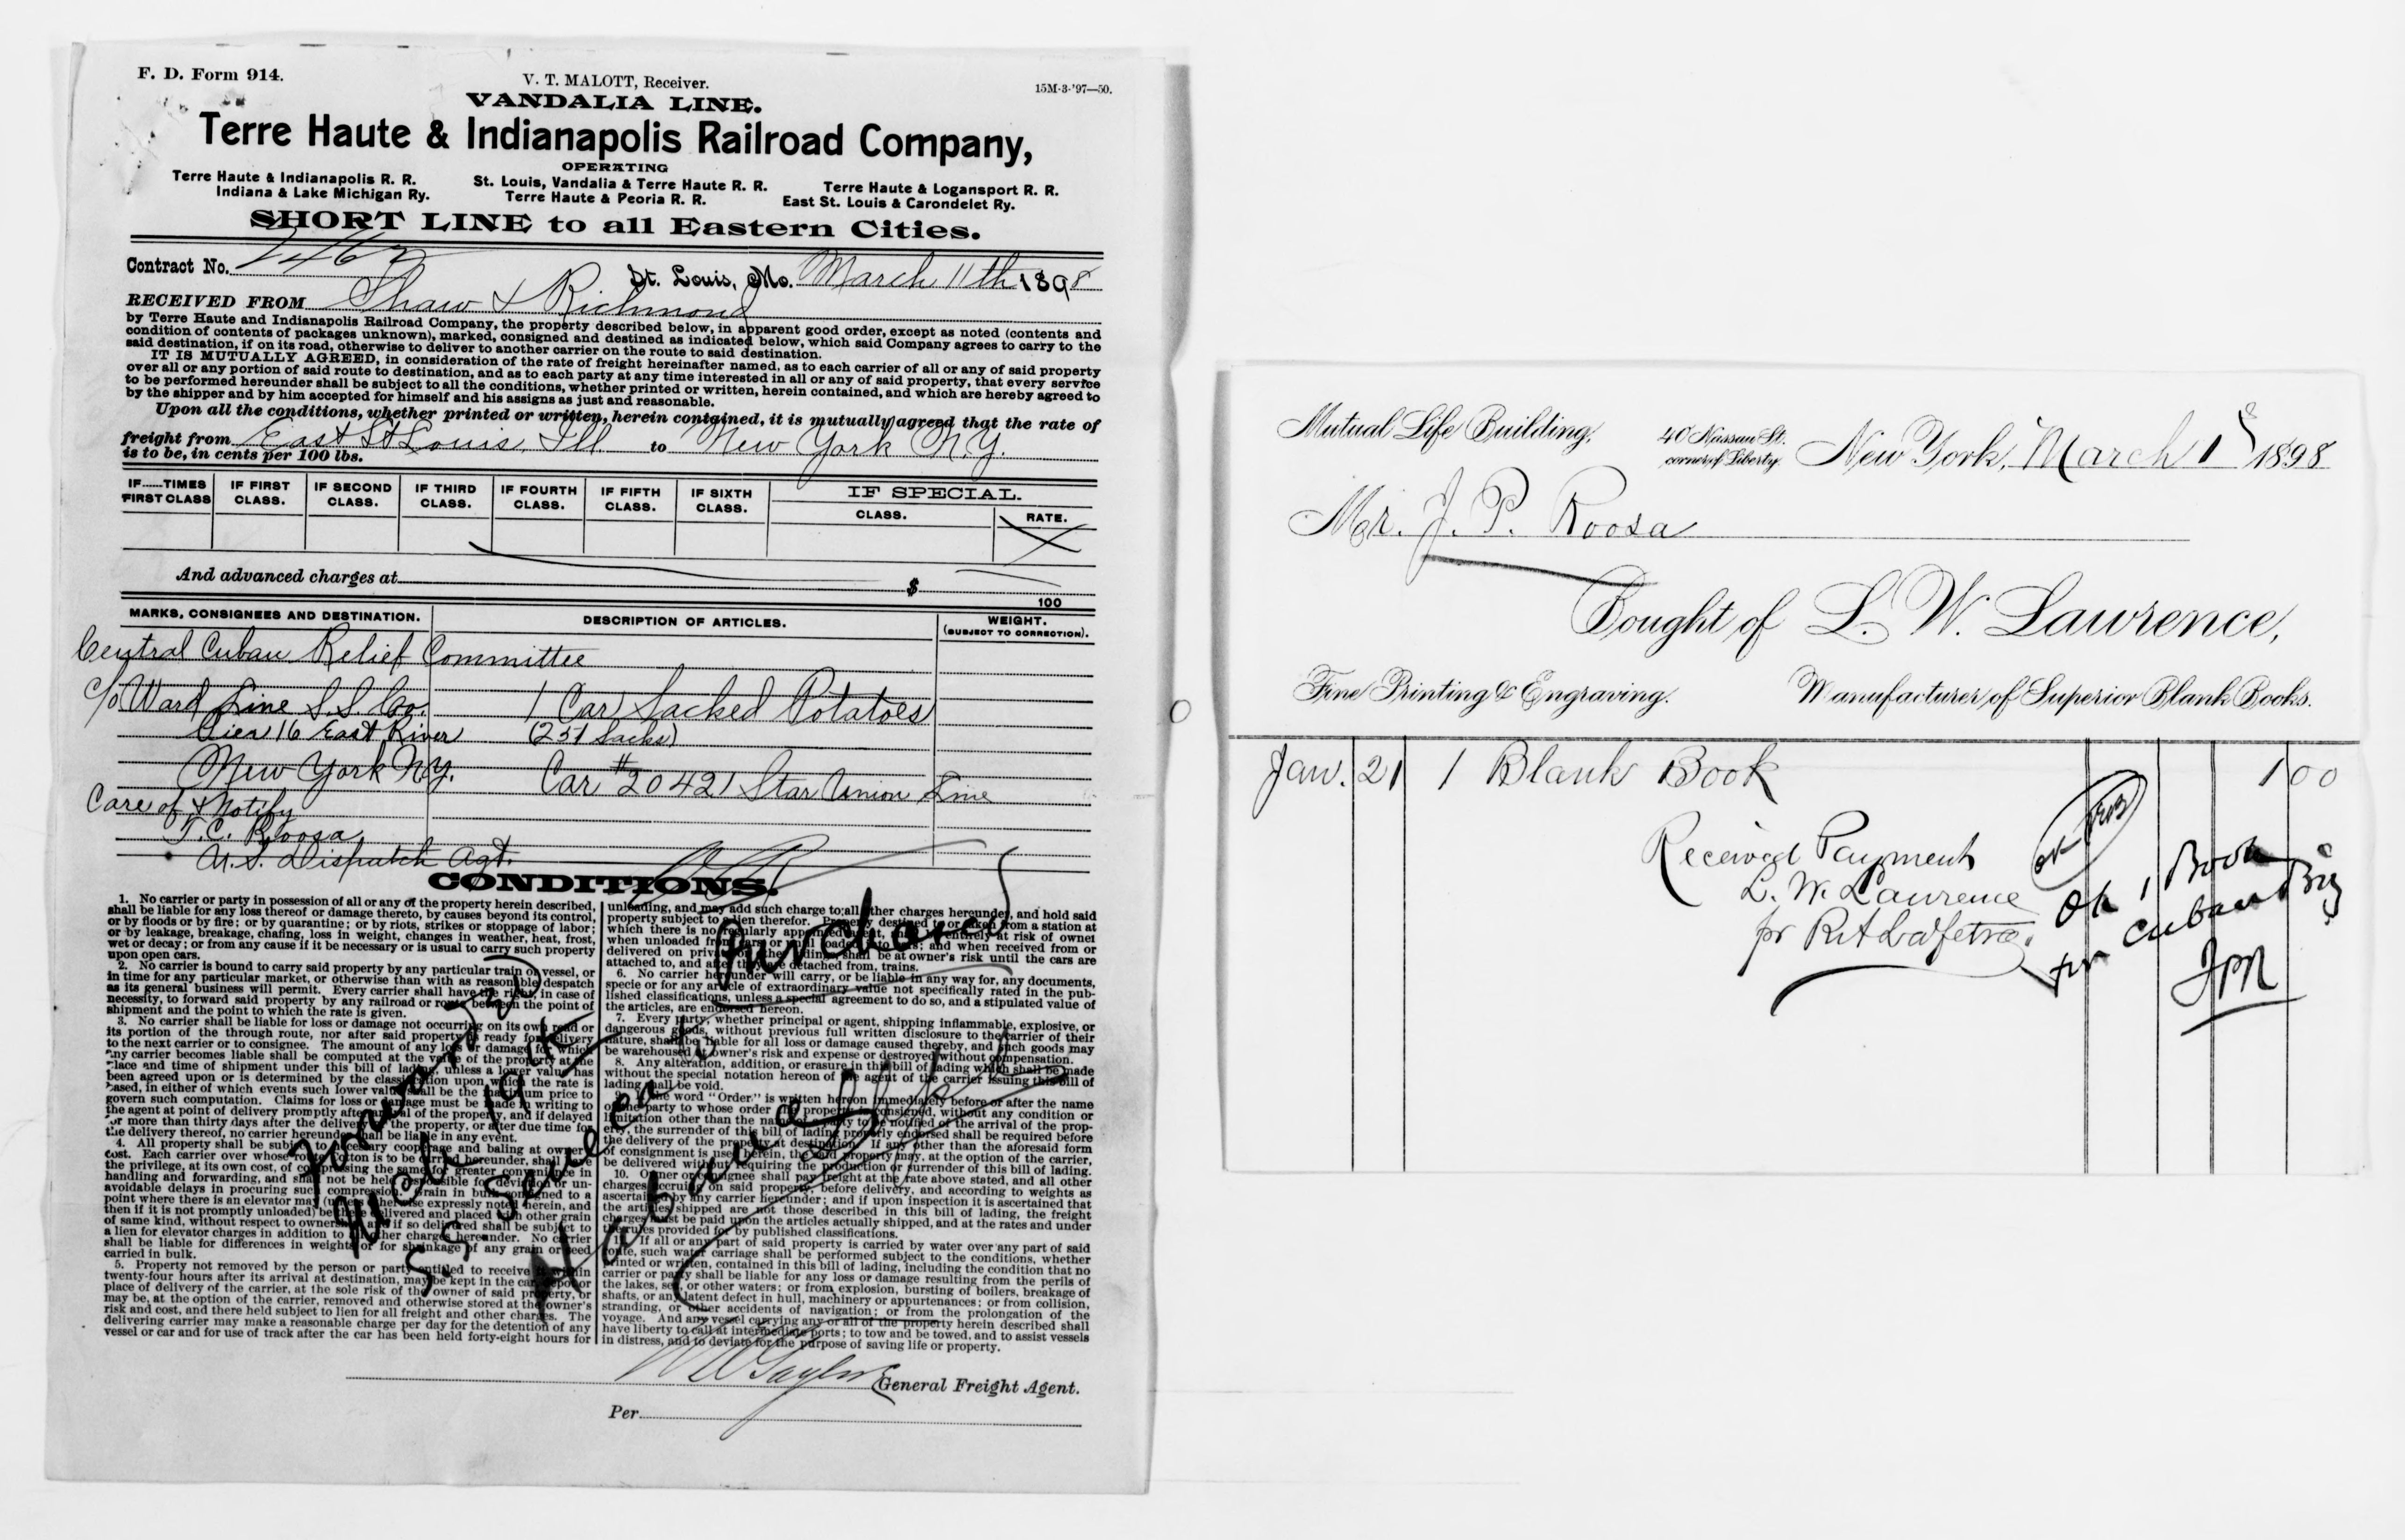 F. D. Form 914.
V. T. MALOTT, Receiver.
15M-3-'97—50.
VANDALIA LINE.
Terre Haute & Indianapolis Railroad Company,
OPERATING
Terre Haute & Indianapolis R. R.
St. Louis, Vandalia & Terre Haute R. R.
Terre Haute & Logansport R. R.
Indiana & Lake Michigan Ry.
Terre Haute & Peoria R. R.
East St. Louis & Carondelet Ry.
SHORT LINE to all Eastern Cities.
Contract No. 2462
St. Louis, Mo. March 11th 1898
RECEIVED FROM Shaw & Richmond
by Terre Haute and Indianapolis Railroad Company, the property described below, in apparent good order, except as noted (contents and
condition of contents of packages unknown), marked, consigned and destined as indicated below, which said Company agrees to carry to the
said destination, if on its road, otherwise to deliver to another carrier on the route to said destination.
IT IS MUTUALLY AGREED, in consideration of the rate of freight hereinafter named, as to each carrier of all or any of said property
over all or any portion of said route to destination, and as to each party at any time interested in all or any of said property, that every service
to be performed hereunder shall be subject to all the conditions, whether printed or written, herein contained, and which are hereby agreed to
by the shipper and by him accepted for himself and his assigns as just and reasonable.
Upon all the conditions, whether printed or written, herein contained, it is mutually agreed that the rate of
freight from East St Louis, Ill. to New York N.Y.
is to be, in cents per 100 lbs.
IF......TIMES FIRST CLASS
IF FIRST CLASS.
IF SECOND CLASS.
IF THIRD CLASS.
IF FOURTH CLASS.
IF FIFTH CLASS.
IF SIXTH CLASS.
IF SPECIAL.
CLASS.
RATE.
And advanced charges at $
100
MARKS, CONSIGNEES AND DESTINATION.
DESCRIPTION OF ARTICLES.
WEIGHT.
(SUBJECT TO CORRECTION).
Central Cuban Relief Committee
c/o Ward Line S.S. Co. 1 Car Sacked Potatoes
Pier 16 East River (251 Sacks)
New York N.Y. Car #20421 Star Union Line
Care of & Notify
T.C. Roosa
U.S. Dispatch Agt.
CONDITIONS.
1. No carrier or party in possession of all or any of the property herein described,
shall be liable for any loss thereof or damage thereto, by causes beyond its control,
or by floods or by fire; or by quarantine; or by riots, strikes or stoppage of labor;
or by leakage, breakage, chafing, loss in weight, changes in weather, heat, frost,
wet or decay; or from any cause if it be necessary or is usual to carry such property
upon open cars.
2. No carrier is bound to carry said property by any particular train or vessel, or
in time for any particular market, or otherwise than with as reasonable despatch
as its general business will permit. Every carrier shall have the right, in case of
necessity, to forward said property by any railroad or route between the point of
shipment and the point to which the rate is given.
3. No carrier shall be liable for loss or damage not occurring on its own road or
its portion of the through route, nor after said property is ready for delivery
to the next carrier or to consignee. The amount of any loss or damage for which
any carrier becomes liable shall be computed at the value of the property at the
place and time of shipment under this bill of lading, unless a lower value has
been agreed upon or is determined by the classification upon which the rate is
based, in either of which events such lower value shall be the maximum price to
govern such computation. Claims for loss or damage must be made in writing to
the agent at point of delivery promptly after arrival of the property, and if delayed
for more than thirty days after the delivery of the property, or after due time for
the delivery thereof, no carrier hereunder shall be liable in any event.
4. All property shall be subject to necessary cooperage and baling at owner's
cost. Each carrier over whose route cotton is to be carried hereunder, shall have
the privilege, at its own cost, of compressing the same for greater convenience in
handling and forwarding, and shall not be held responsible for deviation or un-
avoidable delays in procuring such compression. Grain in bulk consigned to a
point where there is an elevator may (unless otherwise expressly noted herein, and
then if it is not promptly unloaded) be there delivered and placed with other grain
of same kind, without respect to ownership, and if so delivered shall be subject to
a lien for elevator charges in addition to all other charges hereunder. No carrier
shall be liable for differences in weights or for shrinkage of any grain or seed
carried in bulk.
5. Property not removed by the person or party entitled to receive it within
twenty-four hours after its arrival at destination, may be kept in the car, depot or
place of delivery of the carrier, at the sole risk of the owner of said property, or
may be, at the option of the carrier, removed and otherwise stored at the owner's
risk and cost, and there held subject to lien for all freight and other charges. The
delivering carrier may make a reasonable charge per day for the detention of any
vessel or car and for use of track after the car has been held forty-eight hours for
unloading, and may add such charge to all other charges hereunder, and hold said
property subject to a lien therefor. Property destined to or taken from a station at
which there is no regularly appointed agent, shall be entirely at risk of owner
when unloaded from cars or until loaded into cars; and when received from or
delivered on private or other sidings, shall be at owner's risk until the cars are
attached to, and after they are detached from, trains.
6. No carrier hereunder will carry, or be liable in any way for, any documents,
specie or for any article of extraordinary value not specifically rated in the pub-
lished classifications, unless a special agreement to do so, and a stipulated value of
the articles, are endorsed hereon.
7. Every party, whether principal or agent, shipping inflammable, explosive, or
dangerous goods, without previous full written disclosure to the carrier of their
nature, shall be liable for all loss or damage caused thereby, and such goods may
be warehoused at owner's risk and expense or destroyed without compensation.
8. Any alteration, addition, or erasure in this bill of lading which shall be made
without the special notation hereon of the agent of the carrier issuing this bill of
lading shall be void.
9. If the word "Order" is written hereon immediately before or after the name
of the party to whose order the property is consigned, without any condition or
limitation other than the name of a party to be notified of the arrival of the prop-
erty, the surrender of this bill of lading properly endorsed shall be required before
the delivery of the property at destination. If any other than the aforesaid form
of consignment is used herein, the said property may, at the option of the carrier,
be delivered without requiring the production or surrender of this bill of lading.
10. Owner or consignee shall pay freight at the rate above stated, and all other
charges accruing on said property, before delivery, and according to weights as
ascertained by any carrier hereunder; and if upon inspection it is ascertained that
the articles shipped are not those described in this bill of lading, the freight
charges must be paid upon the articles actually shipped, and at the rates and under
the rules provided for by published classifications.
If all or any part of said property is carried by water over any part of said
route, such water carriage shall be performed subject to the conditions, whether
printed or written, contained in this bill of lading, including the condition that no
carrier or party shall be liable for any loss or damage resulting from the perils of
the lakes, sea, or other waters; or from explosion, bursting of boilers, breakage of
shafts, or any latent defect in hull, machinery or appurtenances; or from collision,
stranding, or other accidents of navigation; or from the prolongation of the
voyage. And any vessel carrying any or all of the property herein described shall
have liberty to call at intermediate ports; to tow and be towed, and to assist vessels
in distress, and to deviate for the purpose of saving life or property.
Purchased
forwarded
Mch 19th
SS Seneca to
Havana
General Freight Agent.
Per
Mutual Life Building,
40 Nassau St.
corner of Liberty.
New York, March 18 1898
Mr. J. P. Roosa
Bought of L. W. Lawrence,
Fine Printing & Engraving.
Manufacturer of Superior Blank Books.
Jan. 21 1 Blank Book 1 00
Received Payment
L. W. Lawrence
pr
OK 1 Book
for Cuban Biz